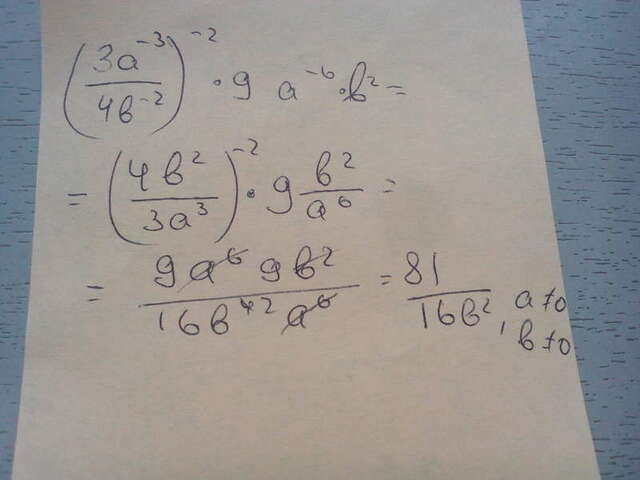 (3a⁻³/4b⁻²)⁻² · 9 a⁻⁶ · b² =
= (4b²/3a³)⁻² · 9 b²/a⁶ =
= 9a⁶ 9b²/16b⁴² a⁶ = 81/16b², a≠0
b≠0